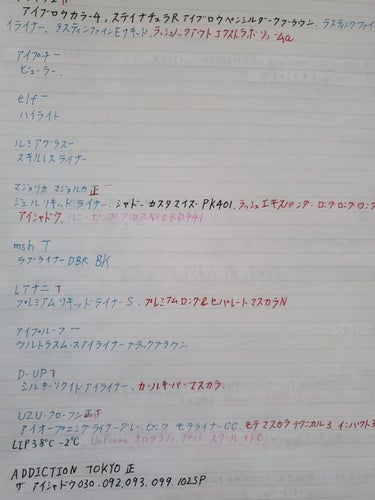 アイブロウカラー4、ステイナチュラRアイブロウペンシルダークブラウン、ラスティングファイン
イライナー、ラスティファインEリキッド、ラッシュノックアウトエクストラボリュー4a
アイプチー
ビューラー、
elf ー
ハイライト
ルミアグラスー
スキルレスライナー
マジョリカ マジョルカ 正一
ジェルリキッドライナー、シャドーカスタマイズPK401、ラッシュエキスパンダーロングロングロング
アイシャドウ、ハニーポンプグロスNEO RD441
msh T
ラブライナーDBR、BK
レアナニT
プレミアムリキッドライナーS、プレミアムロング&セパレートマスカラN
アイプルーフー
ウルトラスム-スアイライナーブラックブラウン
D-UP T
シルキーリクイドアイライナー、カールキーパーマスカラ
UZU-フローフシ正
アイオープニングライナーグレー、ピンク モテライナーCC、モテマスカラテクニカル3、インパクト3
LIP38℃ -2℃、UnFrame ホログラフィ
ADDICTION TOKYO 正
ザ アイシャドウ030、092、093、099、102SP